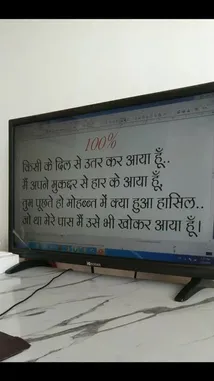 100%
किसी के दिल से उतर कर आया हूँ..
मैं अपने मुकदर से हार के आया हूँ,
तुम पूछते हो मोहब्बत में क्या हुआ हासिल..
जो था मेरे पास मैं उसे भी खोकर आया हूँ।